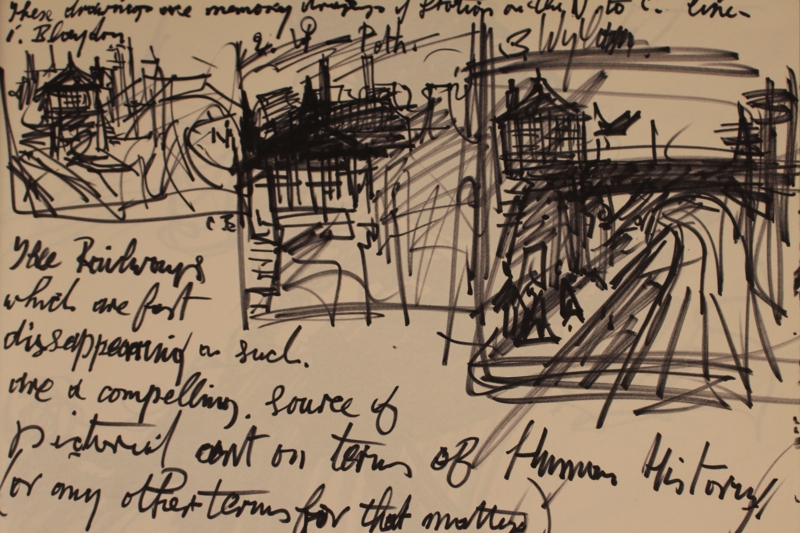 These drawings are memory images of Station on the N to C. line-
1. Blaydon
2. of Poth.
3 Wylam.
N
C
The Railways
which are fast
disappearing as such.
are a compelling. source of
pictorial art on terms of Human History
(or any other terms for that matter)